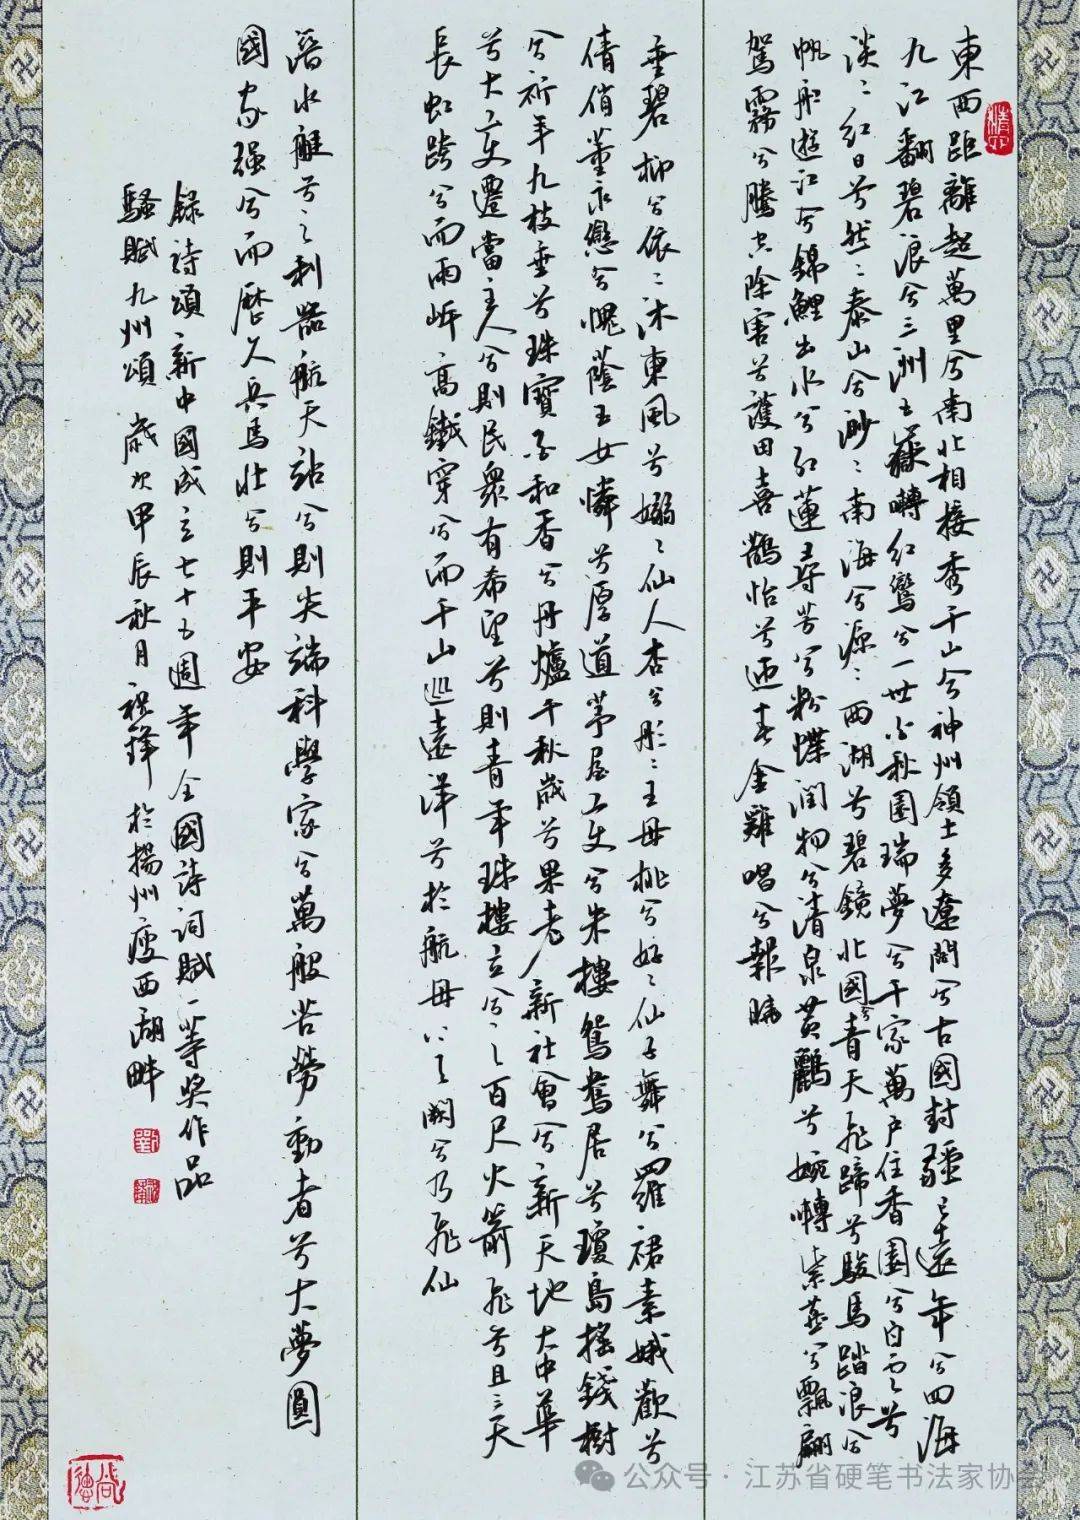 東西距離超萬里兮南北相接秀千山兮神州領土多遼闊兮古國封疆已遠年兮四海
九江翻碧浪兮三洲五嶽囀紅鸞兮一世春秋圓瑞夢兮千家萬戶住香園兮白雲兮
淡淡紅日兮然然泰山兮渺渺南海兮源源西湖兮碧鏡北國兮青天飛蹄兮駿馬踏浪兮
帆船遊江兮錦鯉出水兮紅蓮尋芳兮粉蝶潤物兮清泉黃鸝兮婉囀紫燕兮飄翩
駕霧兮騰空除害兮護田喜鵲怡兮迎春金雞唱兮報曉
垂碧柳兮依依沐東風兮嫋嫋仙人杏兮彤彤王母桃兮好好仙子舞兮羅裙素娥歡兮
倩俏董永戀兮槐蔭玉女憐兮厚道茅屋工夫兮朱樓鴛鴦居兮瓊島搖錢樹
兮祈年九枝垂兮珠寶和香兮丹爐千秋歲兮果老新社會兮新天地大中華
兮大變遷當主人兮則民眾有希望兮則青年珠樓立兮之百尺火箭飛兮且三天
長虹跨兮而兩岸高鐵穿兮而千山巡遠洋兮於航母入天闕兮乃飛仙
潛水艇兮之利器航天站兮則尖端科學家兮萬般苦勞動者兮大夢圓
國家強兮而歷久兵馬壯兮則平安
錄詩頌新中國成立七十五週年全國詩詞賦一等獎作品
騷賦九州頌 歲次甲辰秋月祝鋒於揚州瘦西湖畔
公众号·江苏省硬笔书法家协会